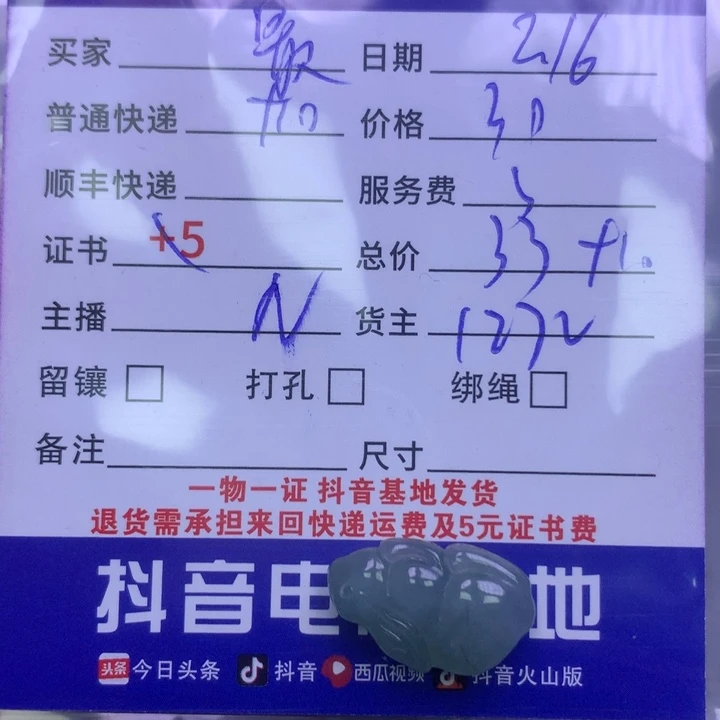 买家 日期 216
普通快递 +10 价格 30
顺丰快递 服务费
证书 +5 总价 33 +10
主播 N 货主 1272
留镶 打孔 绑绳
备注 尺寸
一物一证 抖音基地发货
退货需承担来回快递运费及5元证书费
抖音电 地
头条 今日头条 抖音 西瓜视频 抖音火山版